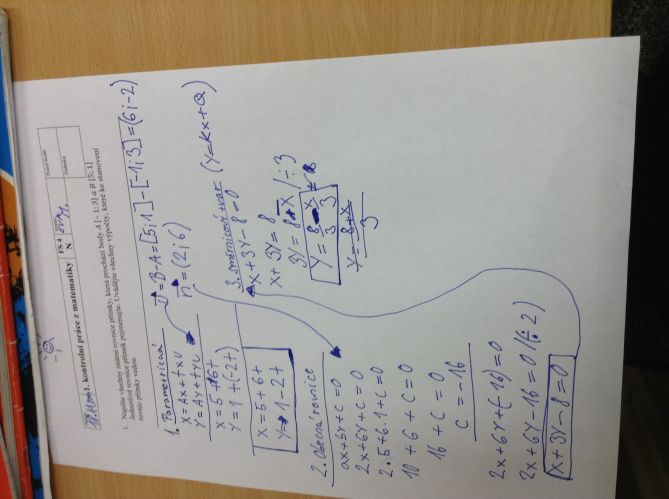 1. kontrolní práce z matematiky
FS 4
N
1. Napište všechny známé rovnice přímky, která prochází body A [-1; 3] a B [5; 1]
Jednotlivé rovnice přímek pojmenujte. Uvádějte všechny výpočty, které ke stanovení
rovnic přímky vedou.
1. Parametrická
X = Ax + t x U
Y = Ay + t y U
X = 5 + 6t
Y = 1 + (-2t)
X = 5 + 6t
Y = 1 - 2t
U = B - A = [5; 1] - [-1; 3] = (6; -2)
n = (2; 6)
2. Obecná rovnice
ax + by + c = 0
2x + 6y + c = 0
2 · 5 + 6 · 1 + c = 0
10 + 6 + c = 0
16 + c = 0
c = -16
2x + 6y + (-16) = 0
2x + 6y - 16 = 0 /(÷ 2)
x + 3y - 8 = 0
3. směrnicový tvar (y = kx + q)
x + 3y - 8 = 0
x + 3y = 8
3y = 8 - x / ÷ 3
y = 8/3 - x/3
y = 8 + x
3